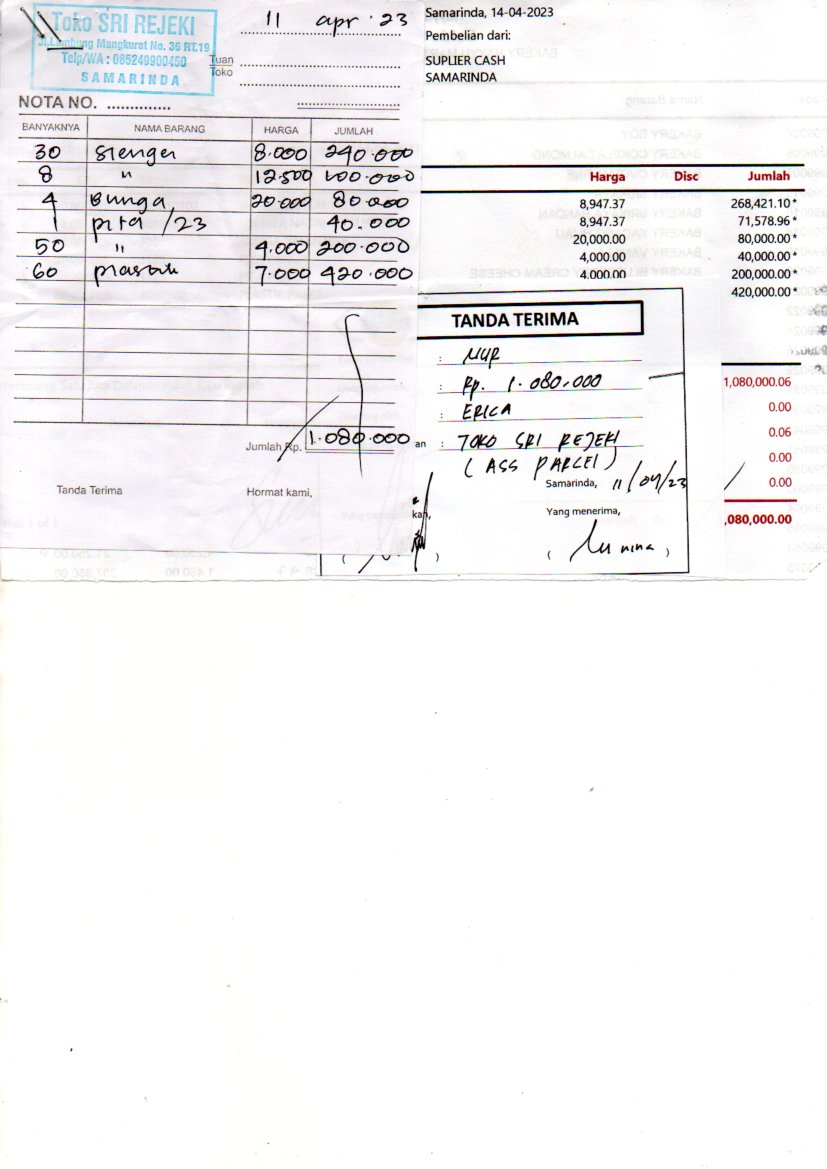 Toko SRI REJEKI
Jl. Lambung Mangkurat No. 36 RT.19
Telp/WA : 085249960450
SAMARINDA
11 apr '23
Tuan
Toko
NOTA NO. ..............
BANYAKNYA NAMA BARANG HARGA JUMLAH
30 8.000 240.000
8 " 12.500 100.000
4 Bunga 20.000 80.000
1 pita /23 40.000
50 " 4.000 200.000
60 7.000 420.000
Jumlah Rp. 1.080.000
Tanda Terima Hormat kami,
Samarinda, 14-04-2023
Pembelian dari:
SUPLIER CASH
SAMARINDA
Harga Disc Jumlah
8,947.37 268,421.10*
8,947.37 71,578.96*
20,000.00 80,000.00*
4,000.00 40,000.00*
4.000.00 200,000.00*
420,000.00*
1,080,000.06
0.00
0.06
0.00
0.00
,080,000.00
TANDA TERIMA
: NUR
: Rp. 1.080.000
: ERICA
an : TOKO SRI REJEKI
(ASS PARCEL)
Samarinda, 11/04/23
kan, Yang menerima,
( ) ( )